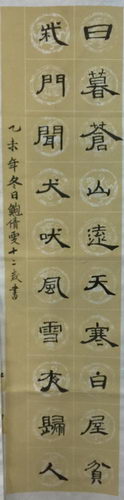 日暮蒼山遠天寒白屋貧
柴門聞犬吠風雪夜歸人
乙未年冬日鮑倩雯十二歲書